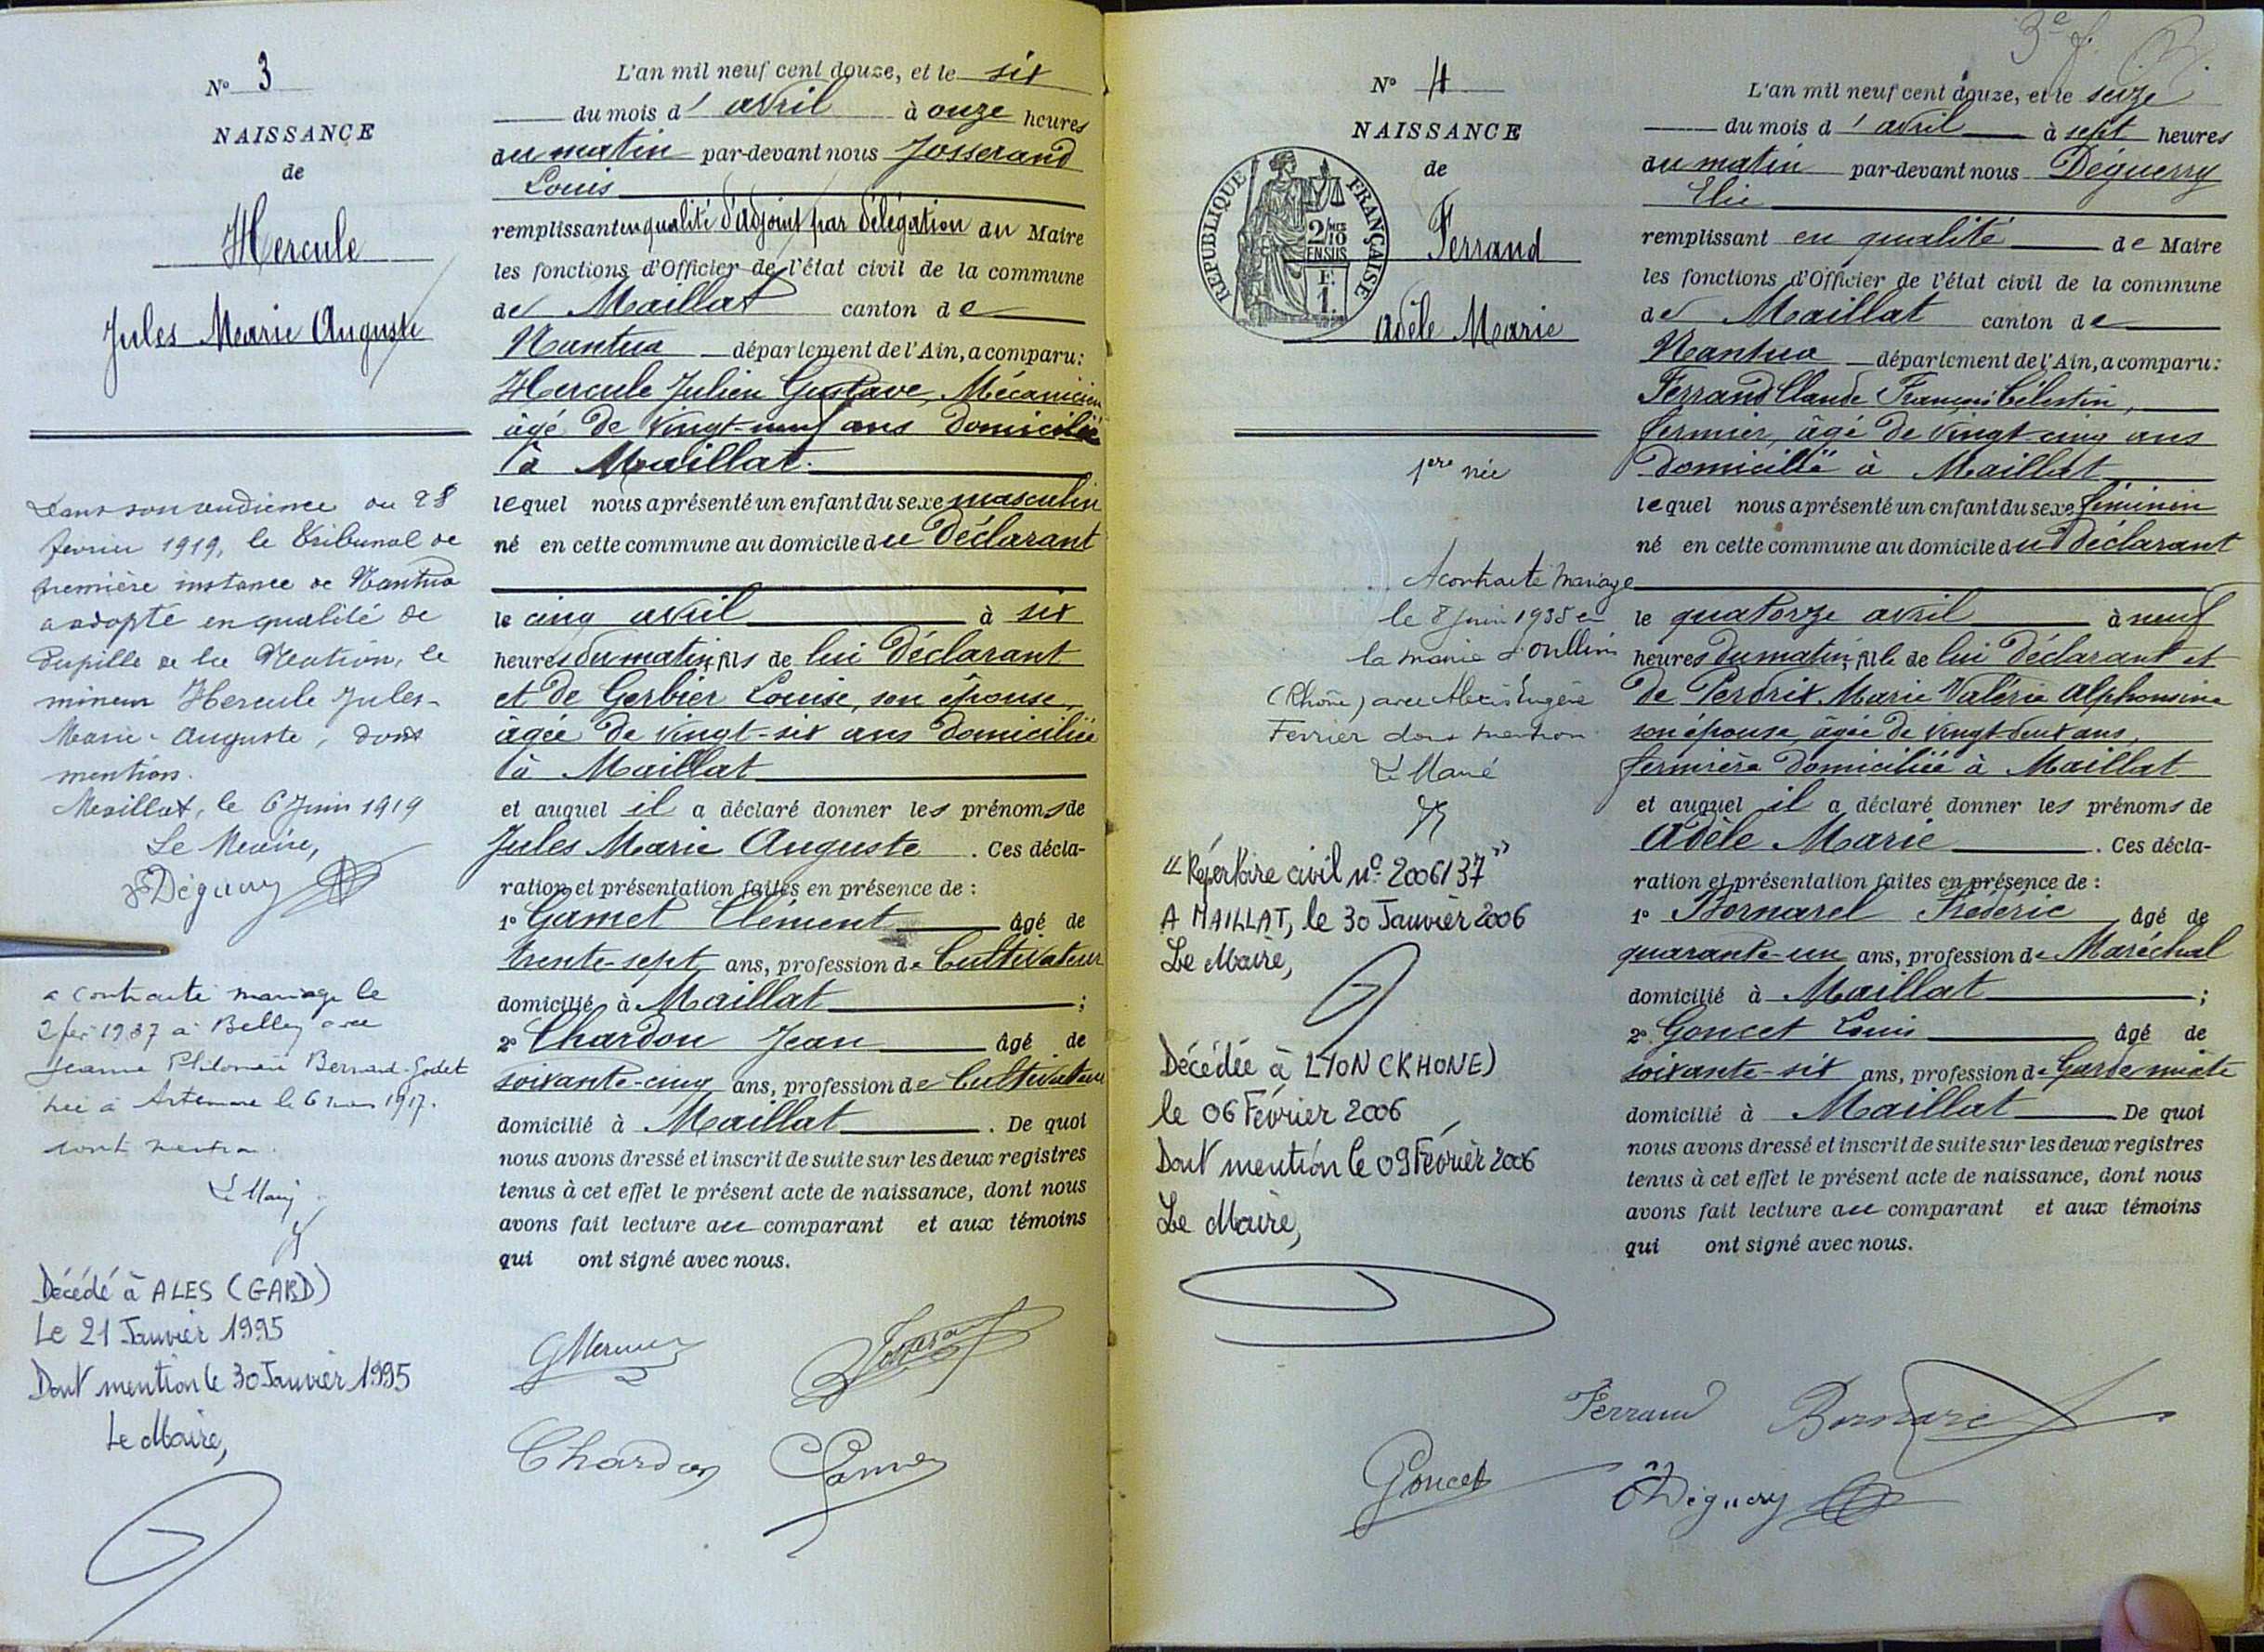 N° 3
NAISSANCE
de
Hercule
Jules Marie Auguste
Dans son audience du 28
fevrier 1919, le Tribunal de
première instance de Nantua
a adopté en qualité de
Pupille de la Nation, le
mineur Hercule Jules-
Marie-Auguste, dont
mention.
Maillat, le 6 Juin 1919
Le Maire,
Déguerry
a contracté mariage le
2 fev 1937 a Belley avec
Jeanne Philomène Bernard-Godet
née à Artemare le 6 mars 1917.
dont mention.
Le Maire
Décédé à ALES (GARD)
Le 21 Janvier 1995
Dont mention le 30 Janvier 1995
Le Maire,
L'an mil neuf cent douze, et le six
du mois d' avril à onze heures
du matin par-devant nous Josserand
Louis
remplissant en qualité d'adjoint par délégation du Maire
les fonctions d'Officier de l'état civil de la commune
de Maillat canton de
Nantua département de l'Ain, a comparu:
Hercule Julien Gustave, Mécanicien
âgé de vingt-neuf ans domicilié
à Maillat.
lequel nous a présenté un enfant du sexe masculin
né en cette commune au domicile du Déclarant
le cinq avril à six
heures du matin, fils de lui Déclarant
et de Gerbier Louise, son épouse,
âgée de vingt-six ans domiciliée
à Maillat
et auquel il a déclaré donner les prénoms de
Jules Marie Auguste. Ces décla-
ration et présentation faites en présence de :
1° Gamet Clément âgé de
trente-sept ans, profession de Cultivateur
domicilié à Maillat ;
2° Chardon Jean âgé de
soixante-cinq ans, profession de Cultivateur
domicilié à Maillat. De quoi
nous avons dressé et inscrit de suite sur les deux registres
tenus à cet effet le présent acte de naissance, dont nous
avons fait lecture au comparant et aux témoins
qui ont signé avec nous.
Chardon
3e f.
N° 4
NAISSANCE
de
REPUBLIQUE FRANÇAISE
2/10 MES
EN SUS
F.
1.
Ferrand
Adèle Marie
1ere née
A contracté mariage
le 8 juin 1935 en
la mairie d'Oullins
(Rhône) avec Alexis Eugène
Ferrier dont mention
Le Maire
"Répertoire civil n° 2006/37"
A MAILLAT, le 30 Janvier 2006
Le Maire,
Décédée à LYON (RHONE)
le 06 Février 2006
Dont mention le 09 Février 2006
Le Maire,
L'an mil neuf cent douze, et le seize
du mois d' avril à sept heures
du matin par-devant nous Déguerry
Elie
remplissant en qualité de Maire
les fonctions d'Officier de l'état civil de la commune
de Maillat canton de
Nantua département de l'Ain, a comparu:
Ferrand Claude François Célestin,
fermier, âgé de vingt-cinq ans
domicilié à Maillat
lequel nous a présenté un enfant du sexe féminin
né en cette commune au domicile du déclarant
le quatorze avril à neuf
heures du matin, fille de lui déclarant et
de Perdrix Marie Valérie Alphonsine
son épouse âgée de vingt-deux ans,
fermière domiciliée à Maillat
et auquel il a déclaré donner les prénoms de
Adèle Marie. Ces décla-
ration et présentation faites en présence de :
1° Bornarel Frédéric âgé de
quarante-un ans, profession de Maréchal
domicilié à Maillat ;
2° Goncet Louis âgé de
soixante-six ans, profession de Garde mixte
domicilié à Maillat De quoi
nous avons dressé et inscrit de suite sur les deux registres
tenus à cet effet le présent acte de naissance, dont nous
avons fait lecture au comparant et aux témoins
qui ont signé avec nous.
Ferrand Bornarel
Goncet Déguerry